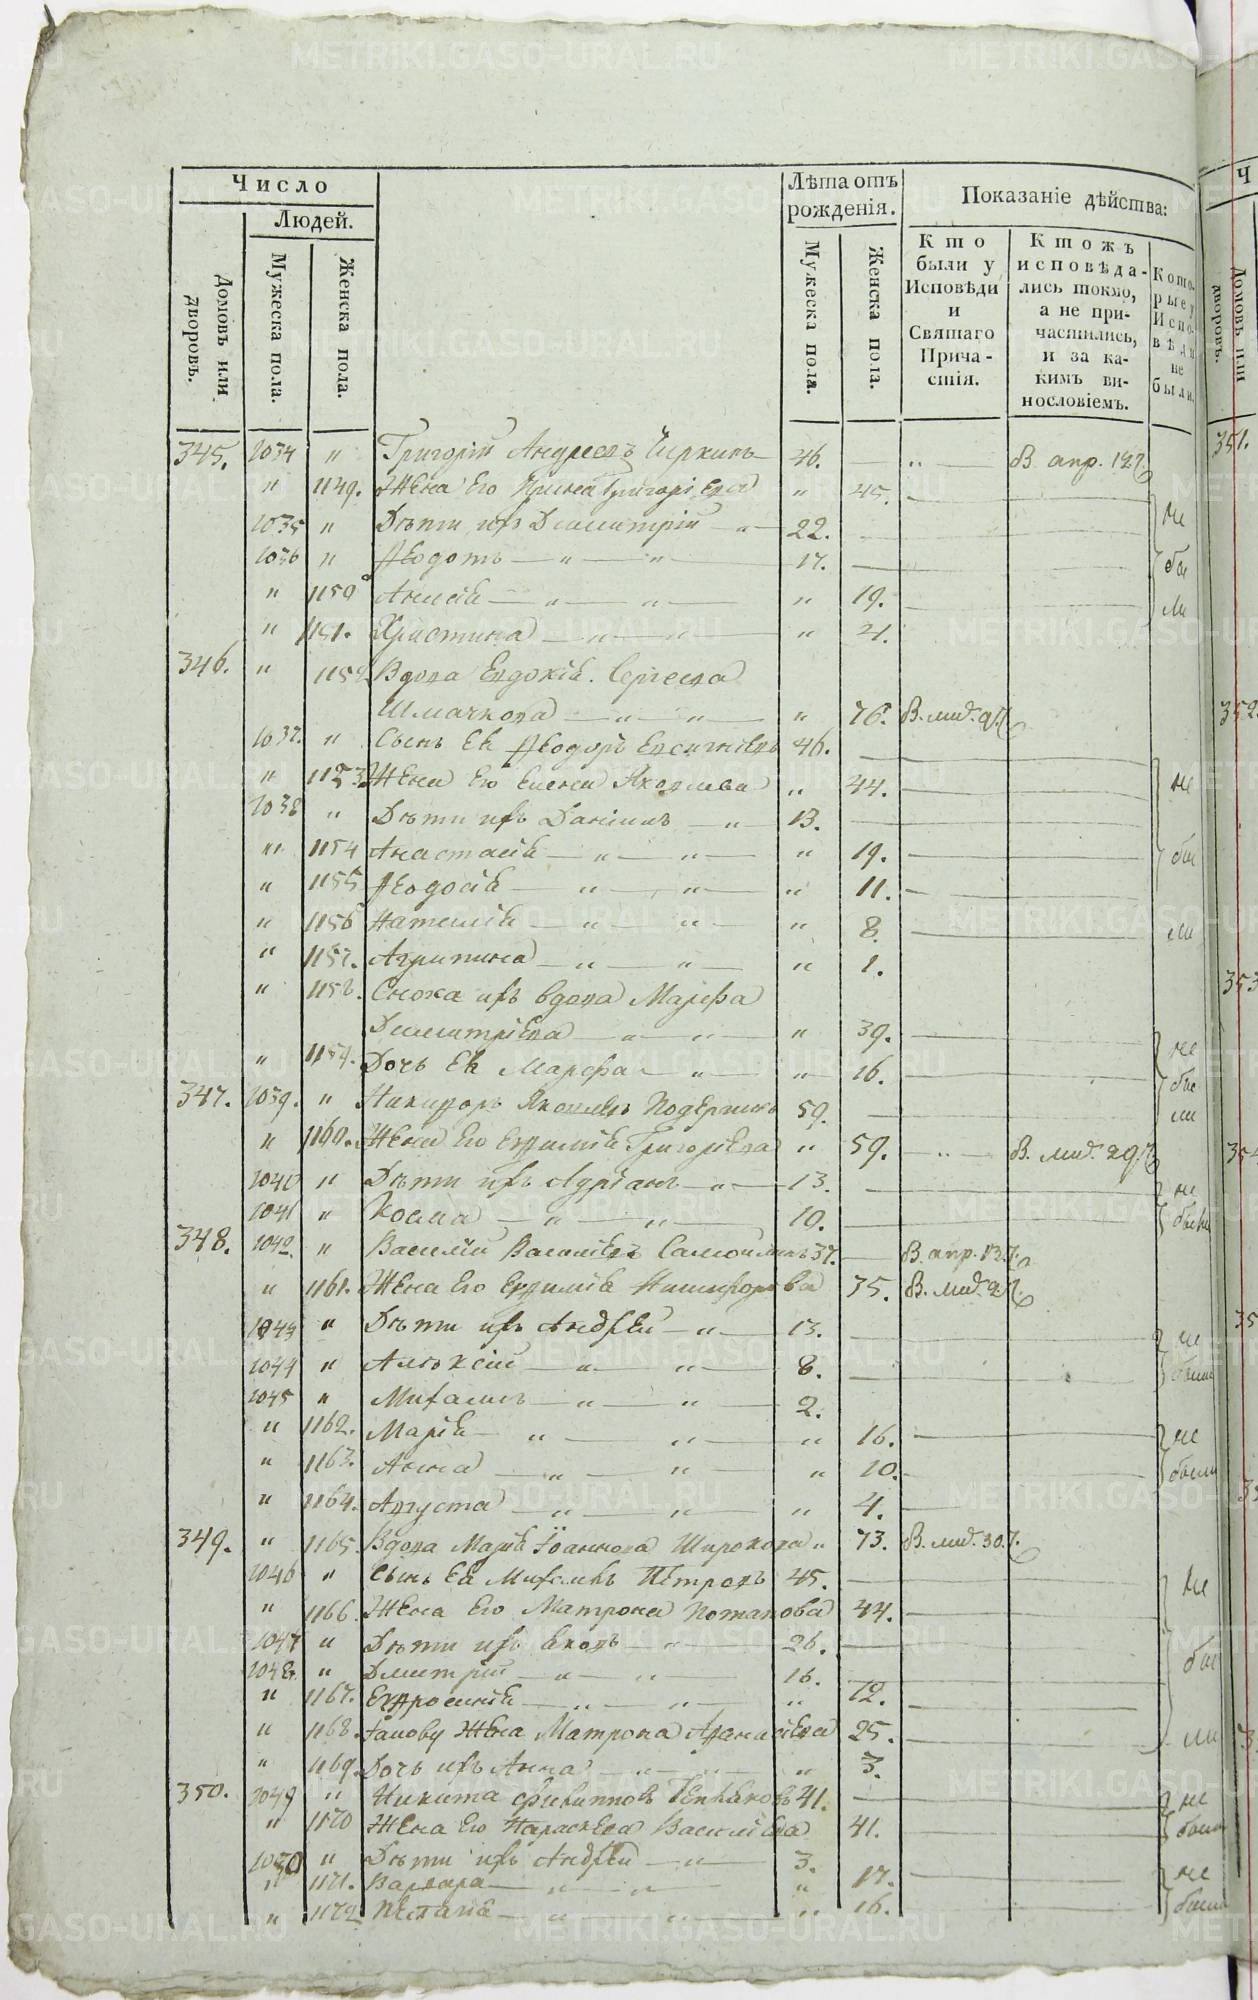 Число
Людей.
Домовъ или дворовъ.
Мужеска пола.
Женска пола.
Лѣта отъ рожденія.
Мужеска пола.
Женска пола.
Показаніе дѣйства:
Кто были у Исповѣди и Святаго Причастія.
Ктожъ исповѣдались токмо, а не причастились, и за какимъ винословіемъ.
Которые у Исповѣди не были.
345. 1034 " Григорій Андреевъ Чиркинъ 46. — " — В. апр. 12.
" 1149. Жена Его Ирина Григоріева " 45.
1035 " Дѣти ихъ Димитрій — " — 22. не
1036 " Ѳеодотъ — " — " — 17. бы
" 1150 Анисія — " — " — " 19. ли
" 1151. Христина — " — " — " 21.
346. " 1152 Вдова Евдокія Сергеева
Шмачкова — " — " — " 76.
1037. " Сынъ Ея Ѳеодоръ 46.
" 1153 Жена Его Елена Яковлева " 44. не
1038 " Дѣти ихъ Даніилъ — " — 13.
" 1154 Анастасія — " — " — " 19. бы
" 1155 Ѳеодосія — " — " — " 11.
" 1156 Наталія — " — " — " 8. ли
" 1157. Агрипина — " — " — " 1.
" 1158. Сноха ихъ вдова Марѳа
Димитріева — " — " — " 39. не
" 1159. Дочь Ея Марѳа — " — " 16. бы
347. 1039. " Никифоръ Яковлевъ 59. ли
" 1160. Жена Его Евфимія Григорьева " 59. — " —
1040 " Дѣти ихъ Адріанъ — " — 13. не
1041 " Косма — " — " — 10. были
348. 1042. " Василій Васильевъ Самойлинъ 37. — В. апр. 13.
" 1161. Жена Его Евфимія Никифорова 35.
1043 " Дѣти ихъ Андрей — " — 13. не
1044 " Алексій — " — " — 8. были
1045 " Михаилъ — " — " — 2.
" 1162. Марія — " — " — " 16. не
" 1163. Анна — " — " — " 10. были
" 1164. Августа — " — " — " 4.
349. " 1165. Вдова Марія Іоаннова Широкова " 73.
1046 " Сынъ Ея Михаилъ Петровъ 45. не
" 1166. Жена Его Матрона Потапова 44.
1047 " Дѣти ихъ — " — 26. бы
1048. " Дмитрій — " — " — 16.
" 1167. Евфросинія — " — " — " 12.
" 1168. Жена Матрона Аѳанасіева 25. ли
" 1169. Дочь ихъ Анна — " — " — " 3.
350. 1049 " Никита Филипповъ 41. не
" 1170 Жена Его Параскева Васильева 41. были
1050 " Дѣти ихъ Андрей — " — 3.
" 1171. Варвара — " — " — " 17. не
" 1172 Пелагія — " — " — " 16. были
351.
352.
353
METRIKI.GASO-URAL.RU